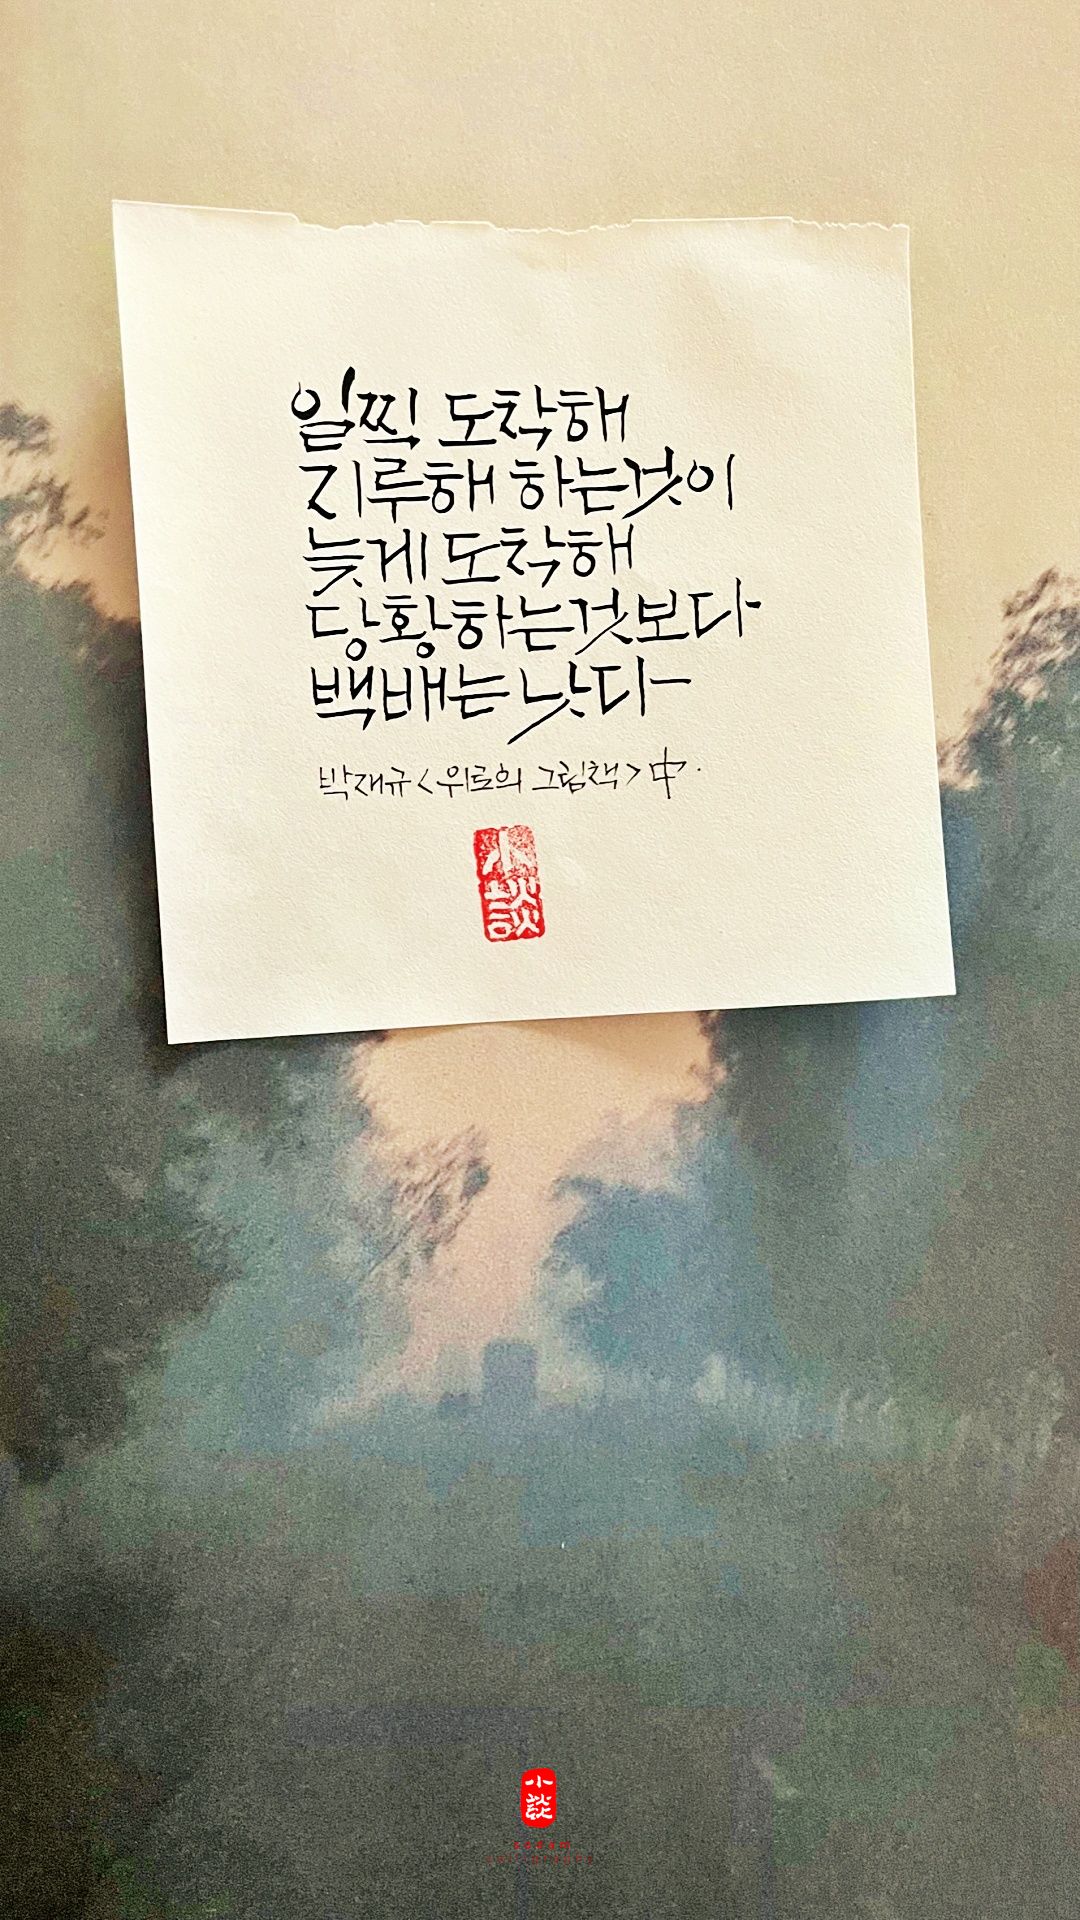 일찍 도착해
지루해 하는것이
늦게 도착해
당황하는것보다
백배는 낫다
박재규 <위로의 그림책> 中.
小談
小談